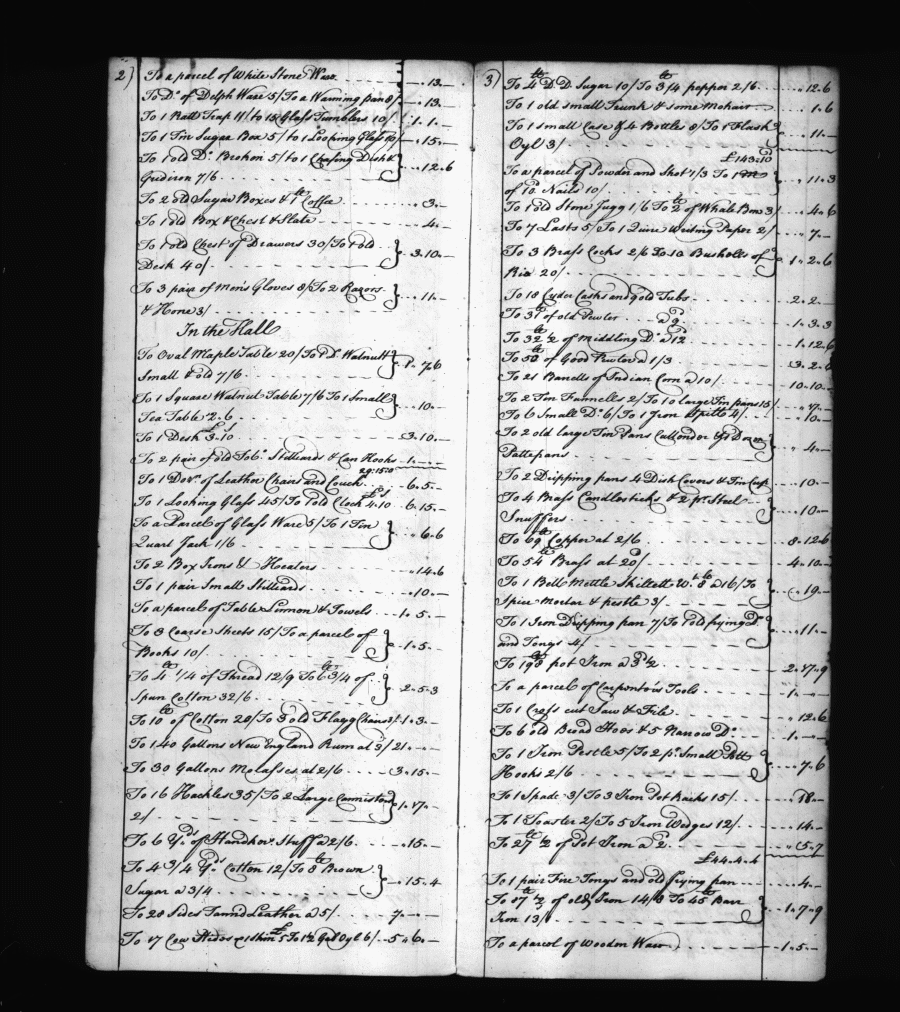 2)
To a parcel of White Stone Ware - - - - 13 -
To Do of Delph Ware 5/ To a Warming pan 8/ - - 13 -
To 1 Ratt Trap 11/ to 15 Glass Tumblers 10/ 1 " 1 -
To 1 Tin Sugar Box 5/ to 1 Looking Glass 10/ - - 15 -
To 1 old Do Broken 5/ to 1 Chafing Dish &
Gridiron 7/6 - - - 12 " 6
To 2 old Sugar Boxes & 1 lb Coffee - - - 3 -
To 1 old Box & Chest & Slate - - - 4 -
To 1 old Chest of Drawers 30/ To 1 old
Desk 40/ - - - 3 " 10 -
To 3 pair of Mens Gloves 8/ To 2 Razors
& Hone 3/ - - - 11 -
In the Hall
To Oval Maple Table 20/ To 1 Do Walnutt
Small & old 7/6 - - - 1 " 7 " 6
To 1 Square Walnut Table 7/6 To 1 Small
Tea Table 2 " 6 - - - 10 -
To 1 Desk £3 " 10 s - - - £3 " 10 -
To 2 pair of old Stilliards & Can Hooks - 1 -
29:15:0
To 1 Dozn of Leather Chairs and Couch - - 6 " 5 -
To 1 Looking Glass 45/ To 1 old Clock £4 " 10 s 6 " 15 -
To a Parcel of Glass Ware 5/ To 1 Tin
Quart Jack 1/6 - - - 6 " 6
To 2 Box Irons & Heaters - - - 14 " 6
To 1 pair Small Stilliards - - - 10 -
To a parcel of Table Linnon & Towels - - 1 " 5 -
To 8 Coarse Sheets 15/ To a parcel of
Books 10/ - - - 1 " 5 -
To 4 lb 1/4 of Thread 12/9 To 6 lb 3/4 of
Spun Cotton 32/6 - - - 2 " 5 " 3
To 10 lb of Cotton 20/ To 3 old Flagg Chairs 3/ 1 " 3 -
To 140 Gallons New England Rum at 3/ 21 " - -
To 30 Gallons Molasses at 2/6 - - - 3 " 15 -
To 16 Hackles 35/ To 2 Large Cannisters
2/ - - - 1 " 17 -
To 6 Yds of Handker Stuff a 2/6 - - - 15 -
To 4 3/4 Yds Cotton 12/ To 8 lb Brown
Sugar a 3/4 - - - 15 " 4
To 28 Sides Tannd Leather a 5/ - - 7 " - -
To 17 Cow Hides £5 To 1 1/2 Gal Oyl 6/ - 5 " 6 -
3)
To 4 lb D.D. Sugar 10/ To 3/4 lb pepper 2/6 - - " 12 " 6
To 1 old small Trunk & some Mohair - - 1 " 6
To 1 small Case & 4 Bottles 8/ To 1 Flask
Oyl 3/ - - - 11 -
£143 " 10
To a parcel of Powder and Shot 1/3 To 1 m
of 10d Nails 10/ - - - 11 " 3
To 1 old Stone Jugg 1/6 To 2 lb of Whale Bone 3/ - 4 " 6
To 7 Lasts 5/ To 1 Quire Writing Paper 2/ - - 7 -
To 3 Brass Cocks 2/6 To 10 Bushells of
Rie 20/ - - - 1 " 2 " 6
To 18 Cyder Casks and 9 old Tubs - - 2 " 2 -
To 31 lb of old Pewter - - a 9d - - 1 " 3 " 3
To 32 lb 1/2 of Middling Do a 12d - - 1 " 12 " 6
To 50 lb of Good Pewter a 1/3 - - 3 " 2 " 6
To 21 Barrells of Indian Corn a 10/ - - 10 " 10 -
To 2 Tin Funnells 2/ To 10 large Tin pans 15/ - " 17 -
To 6 Small Do 6/ To 1 Iron Spitt 4/ - - " 10 -
To 2 old large Tin Pans Cullender & 1 Dozen
Pattepans - - - 4 -
To 2 Dripping pans 4 Dish Covers & Tin Cup - 10 -
To 4 Brass Candlesticks & 2 pr Steel
Snuffers - - - 10 -
To 69 lb Copper at 2/6 - - - 8 " 12 " 6
To 54 lb Brass at 20d - - - 4 " 10 -
To 1 Bell Mettle Skillett Wt 8 lb a 16/ To
Spice Mortar & pestle 3/ - - - 19 -
To 1 Iron Dripping pan 7/ To 1 old frying Do
and Tongs 4/ - - - 11 -
To 198 lb pot Iron a 3d 1/2 - - 2 " 17 " 9
To a parcel of Carpenters Tools - - 1 " - -
To 1 Cross cut Saw & File - - - 12 " 6
To 6 old Broad Hoes & 5 Narrow Do - - 1 " - -
To 1 Iron Pestle 5/ To 2 pr Small Pott
Hooks 2/6 - - - 7 " 6
To 1 Spade 3/ To 3 Iron Pot Racks 15/ - - 18 -
To 1 Toaster 2/ To 5 Iron Wedges 12/ - - 14 -
To 27 lb 1/2 of Pot Iron a 2d - - - " 5 " 7
£44 " 4 " 4
To 1 pair Fire Tongs and old frying pan - - 4 -
To 87 lb 1/2 of old Iron 14/8 To 45 lb Barr
Iron 13/ - - - 1 " 7 " 9
To a parcel of Wooden Ware - - - 1 " 5 -